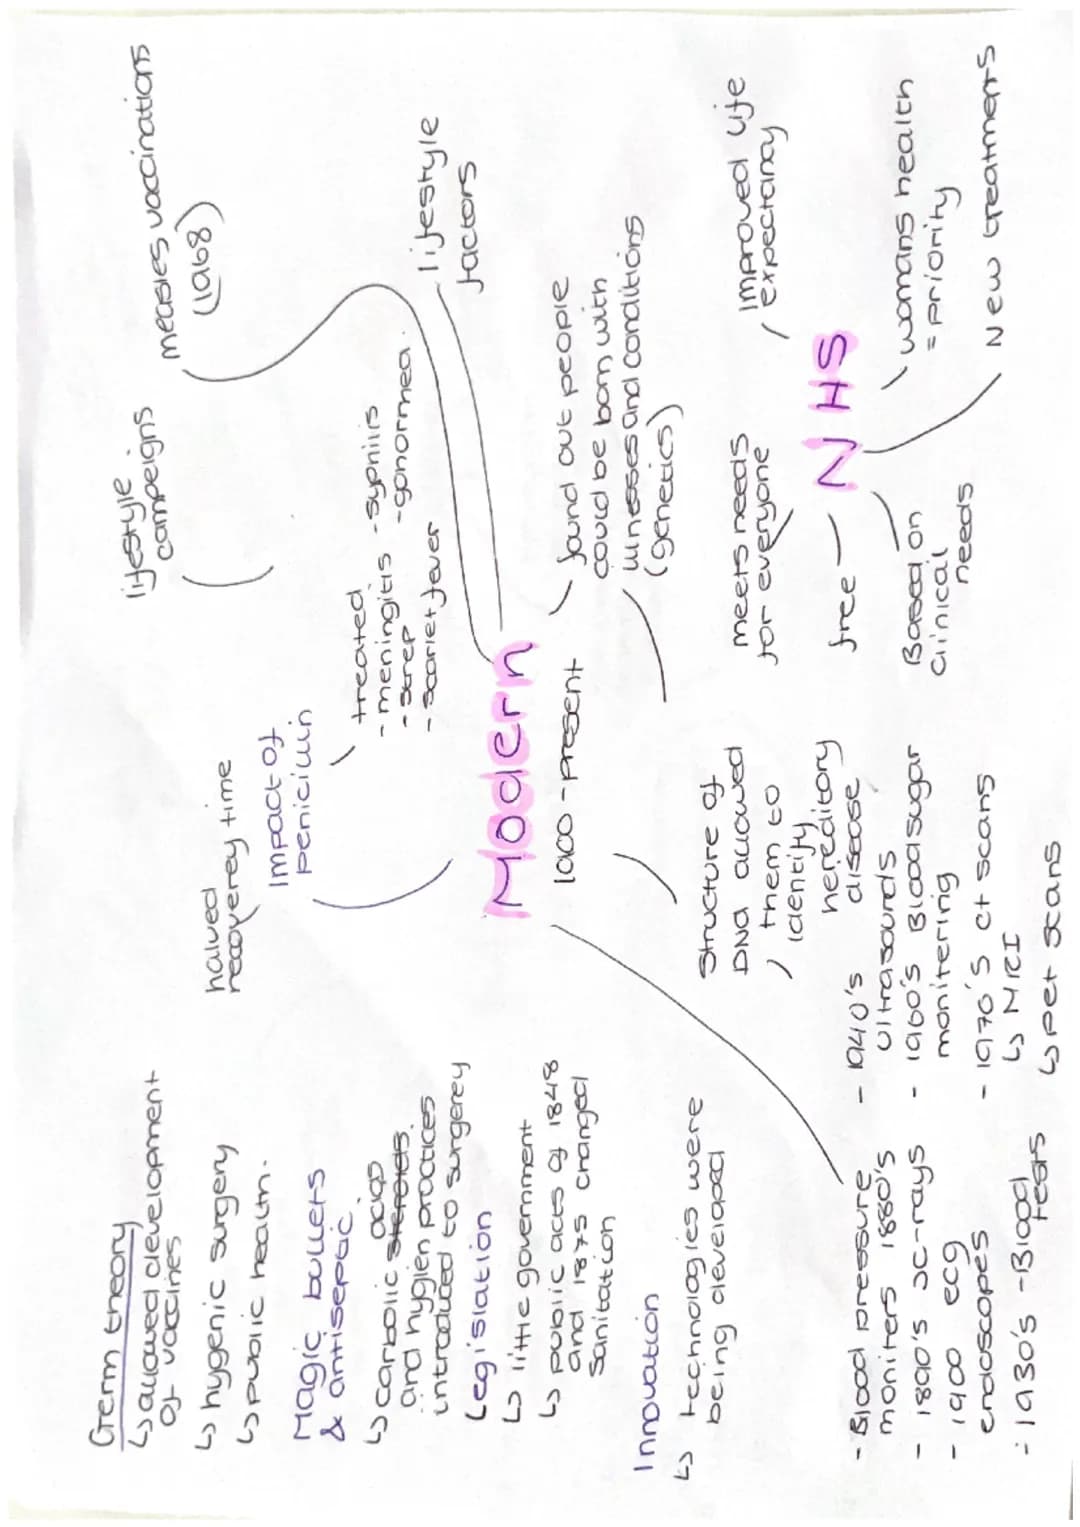 Germ theory
↳ allowed development
of vaccines
↳ hygenic surgery
↳ public health.
Magic bullets
& antiseptic
↳ carbolic steroids. acids
and hygien practices
introduced to surgerey
Legislation
↳ little government
↳ public aces of 1848
and 1875 changed
Sanitation
Innovation
↳ technologies were
being developed
- Blood pressure
moniters 1880's
- 1890's x-rays
- 1900 ecg
endoscopes
- 1930's - Blood
tests
- 1940's
ultrasounds
- 1960's Blood sugar
monitering
- 1970's ct scans
↳ MRI
↳ pet scans
halved
recoverey time
Impact of
penicillin
treated
- meningitis
- strep
- scarlet fever
- syphilis
- gonorrhea
lifestyle
campeigns
measles vaccinations
(1968)
lifestyle
factors
Modern
1900 - present
found out people
could be born with
illnesses and conditions
(genetics)
Structure of
DNA allowed
them to
identify
hereditory
disease
NHS
meets needs
for everyone
free
Based on
clinical
needs
Improved life
expectancy
womans health
= priority
New treatments